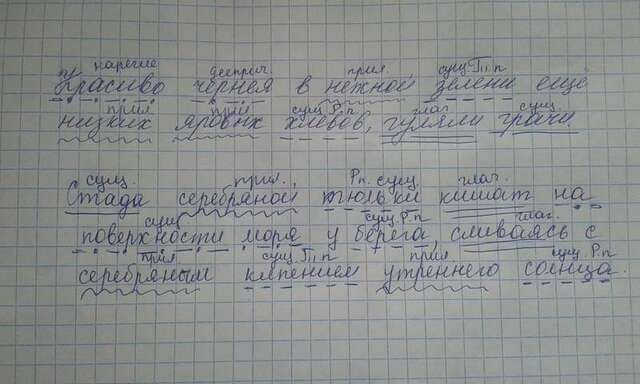 нареч дееприч. прил. сущ. П. п
Красиво чернея в нежной зелени ещё
прил прил сущ Р.п глаг. сущ.
низких яровых хлебов, гуляли грачи.
сущ. прил. Р.п. сущ глаг.
Стада серебряной тюльки кишат на
сущ сущ. Р.п глаг.
поверхности моря у берега, сливаясь с
прил сущ П. п прил сущ Р.п
серебряным кипением утреннего солнца.